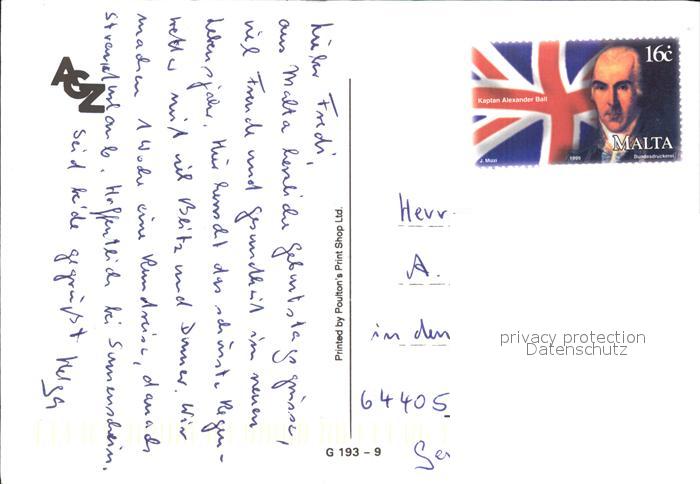 Lieber Fredi,
aus Malta herzliche Geburtstagsgrüsse,
viel Freude und Gesundheit im neuen
Lebensjahr. Hier herrscht das schönste Regen-
wetter mit viel Blitz und Donner. Wir
machen 1 Woche eine Rundreise, danach
Strandurlaub. Hoffentlich bei Sonnenschein.
Seid beide gegrüßt Helga
AGN
Printed by Poulton's Print Shop Ltd.
G 193 – 9
16c
Kaptan Alexander Ball
MALTA
J. Mizzi
1999
Bundesdruckerei
Herr
A.
in den
64405
Ger
privacy protection
Datenschutz